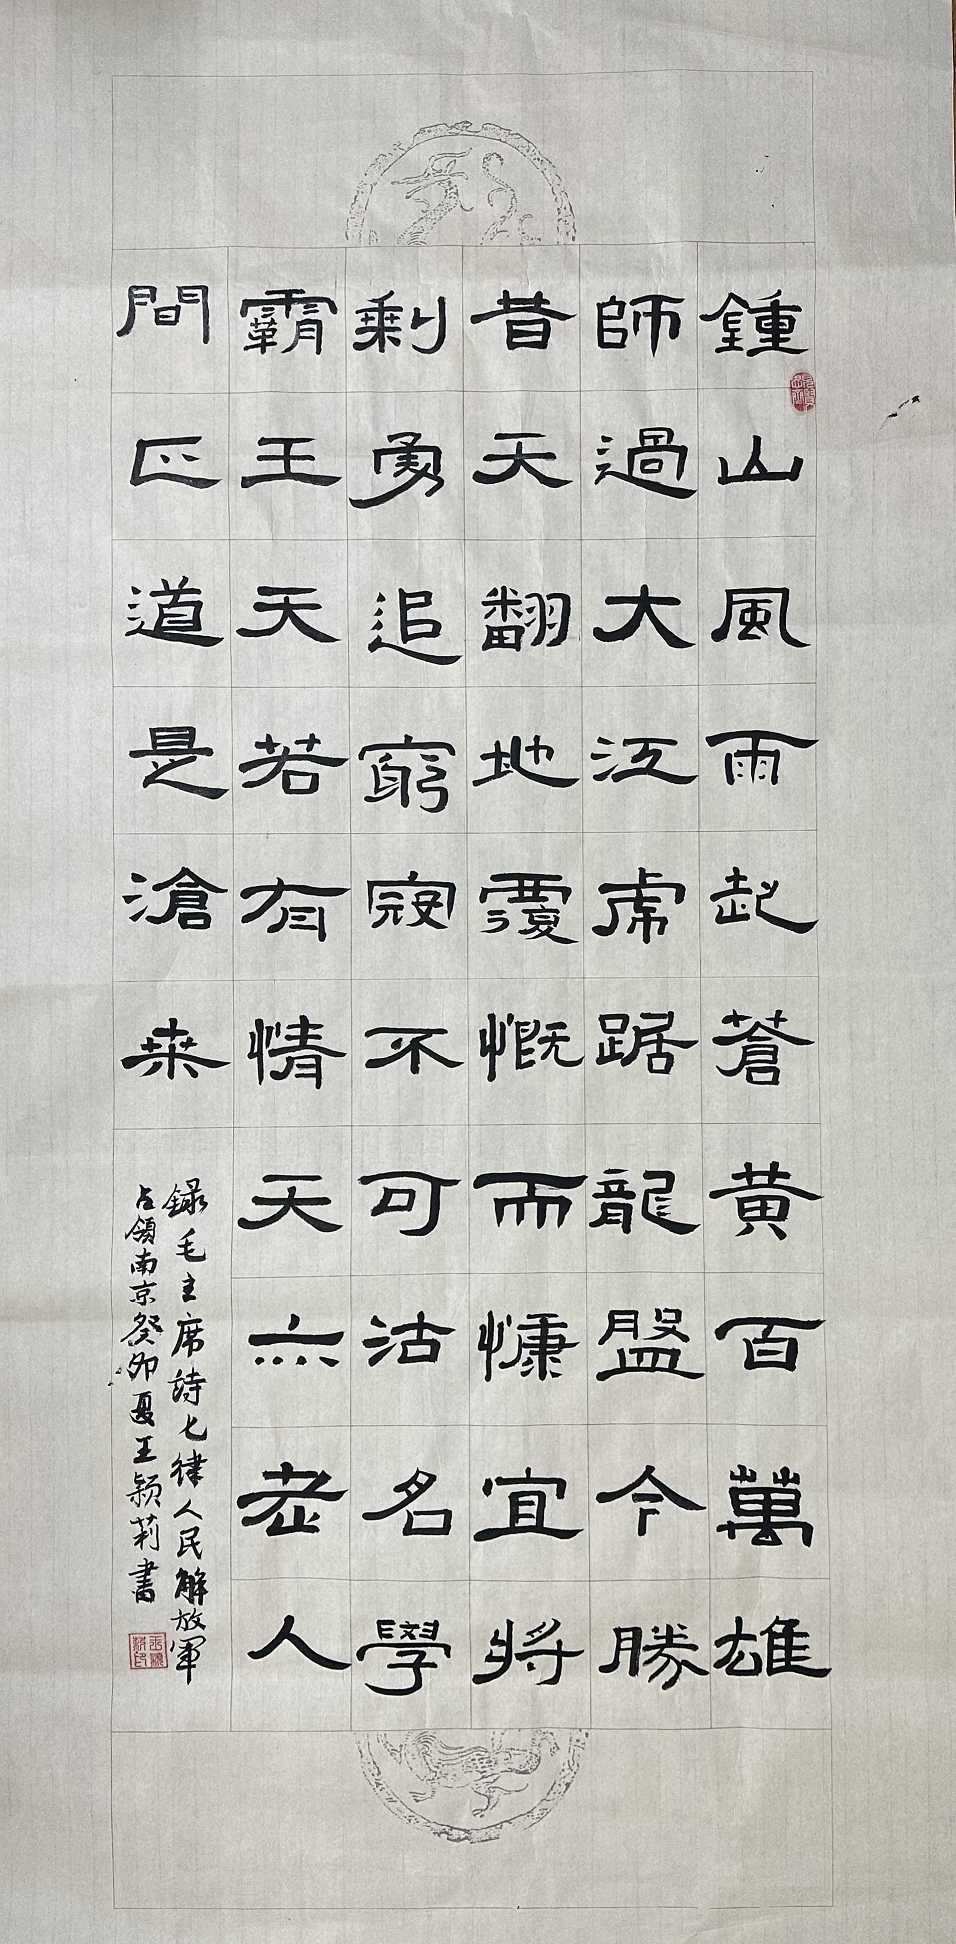 鍾山風雨起蒼黃百萬雄
師過大江虎踞龍盤今勝
昔天翻地覆慨而慷宜將
剩勇追窮寇不可沽名學
霸王天若有情天亦老人
間正道是滄桒
録毛主席詩七律人民解放軍
占領南京癸卯夏王穎莉書